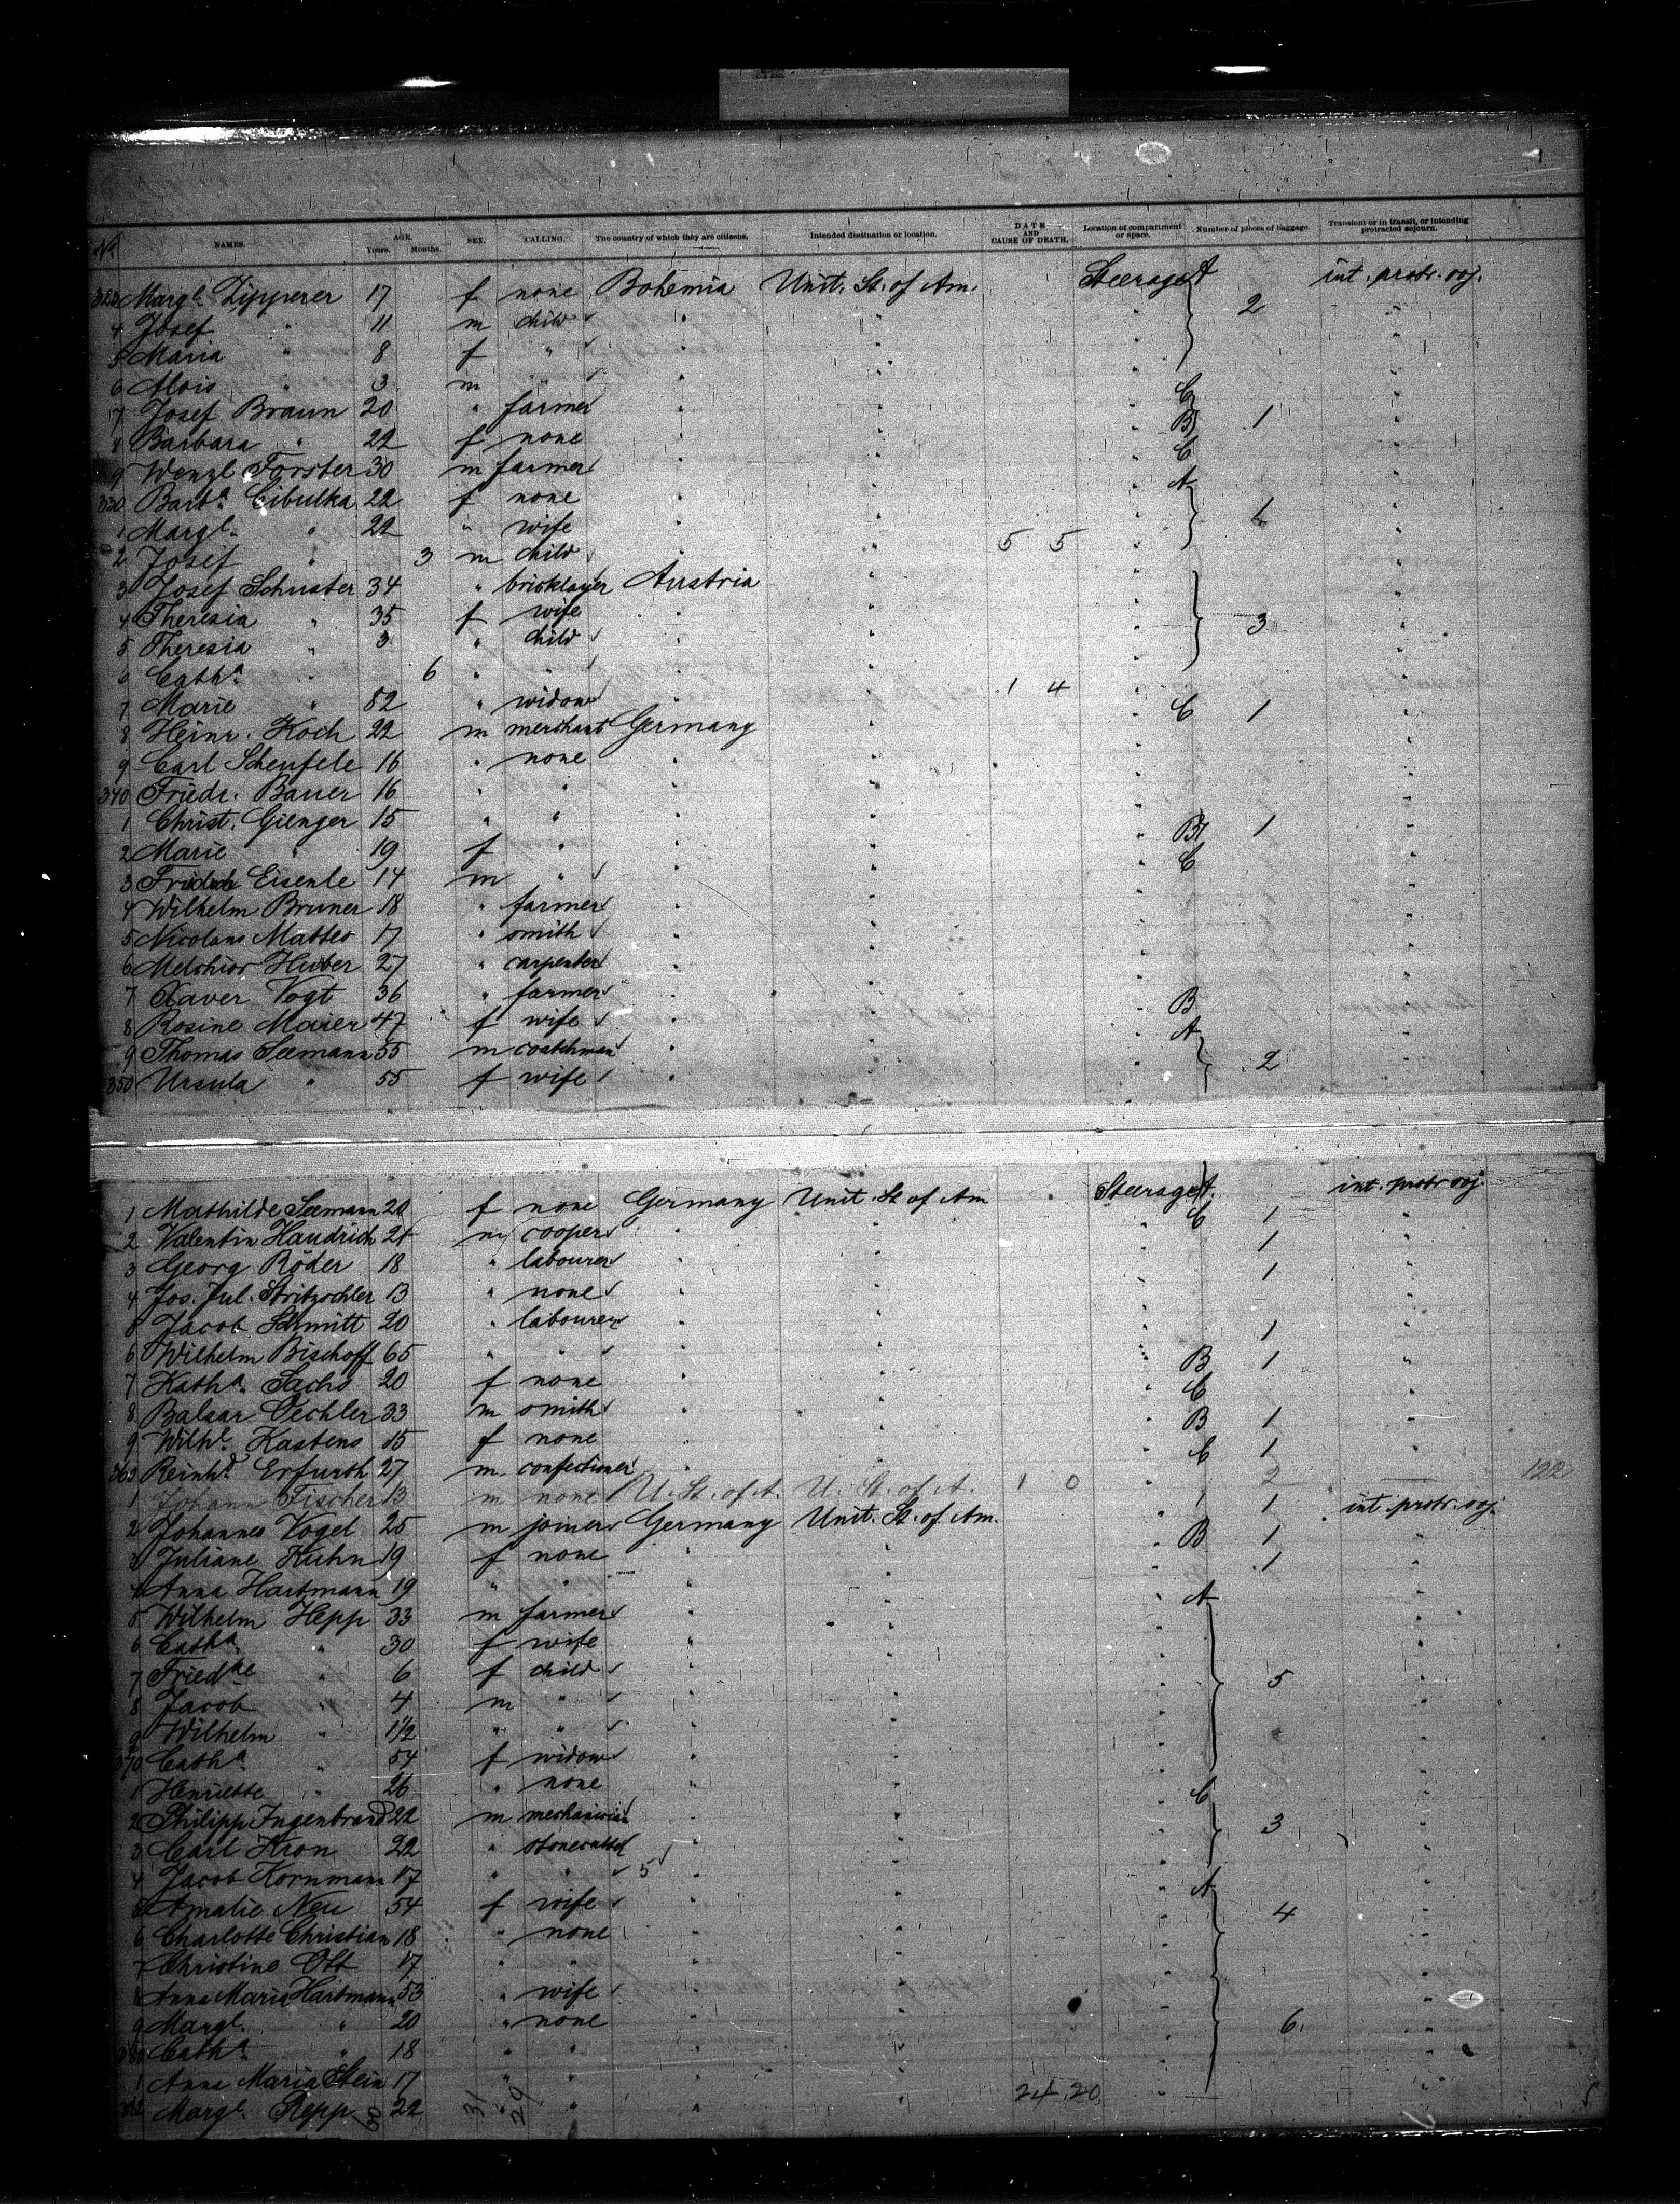 No. NAMES. AGE. Years. Months. SEX. CALLING. The country of which they are citizens. Intended destination or location. DATE AND CAUSE OF DEATH. Location of compartment or space. Number of pieces of baggage. Transient or in transit, or intending protracted sojourn.
323 Margt. Zipperer 17 f none Bohemia Unit. St. of Am. Steerage A 2 int. protr. soj.
4 Josef " 11 m child " " " "
5 Maria " 8 f " " " " "
6 Alois " 3 m " " " " "
7 Josef Braun 20 " farmer " " " C "
8 Barbara " 22 f none " " " B 1 "
9 Wenzl Forster 30 m farmer " " " C "
330 Barba. Cibulka 22 f none " " " A "
1 Margt. " 22 " wife " " " 1 "
2 Josef " 3 m child " " 5 5 " "
3 Josef Schuster 34 " bricklayer Austria " " "
4 Theresia " 35 f wife " " " 3 "
5 Theresia " 3 " child " " " "
6 Catha. " 6 " " " " " "
7 Marie " 52 " widow " " 1 4 " "
8 Heinr. Koch 22 m merchant Germany " " C 1 "
9 Carl Scheufele 16 " none " " " "
340 Friedr. Bauer 16 " " " " " "
1 Christ. Gienger 15 " " " " " "
2 Marie " 19 f " " " " B 1 "
3 Friedrich Eisenle 14 m " " " " C "
4 Wilhelm Bruner 18 " farmer " " " "
5 Nicolaus Mattes 17 " smith " " " "
6 Melchior Huber 27 " carpenter " " " "
7 Xaver Vogt 36 " farmer " " " "
8 Rosine Maier 47 f wife " " " B "
9 Thomas Seemann 55 m coatchman " " " A "
350 Ursula " 55 f wife " " " 2 "
1 Mathilde Seemann 20 f none Germany Unit. St. of Am Steerage A. int. protr soj.
2 Valentin Haudrich 21 m cooper " " " C 1 "
3 Georg Röder 18 " labourer " " " 1 "
4 Jos. Jul. Stritzschler 13 " none " " " 1 "
5 Jacob Schmitt 20 " labourer " " " "
6 Wilhelm Bischoff 65 " " " " " 1 "
7 Katha. Sachs 20 f none " " " B 1 "
8 Balsar Oechler 33 m smith " " " C "
9 Wilhe. Kastens 15 f none " " " B 1 "
360 Reinhd. Erfurth 27 m. confectioner " " " C 1 "
1 Johann Fischer 13 m none U. St. of A. U. St. of A. 1 0 " 2 122
2 Johannes Vogel 25 m joiner Germany Unit. St. of Am. " 1 int. protr. soj.
3 Juliane Kuhn 19 f none " " " B 1 "
4 Anna Hartmann 19 " " " " " 1 "
5 Wilhelm Hepp 33 m farmer " " " A "
6 Catha. " 30 f wife " " " "
7 Friedke " 6 f child " " " 5 "
8 Jacob " 4 m " " " " "
9 Wilhelm " 1½ " " " " " "
370 Catha. " 54 f widow " " " "
1 Henriette " 26 " none " " " "
2 Philipp Jugenbrand 22 m mechanician " " " C "
3 Carl Kron 22 " stonecutter " " " 3 "
4 Jacob Kornmann 17 " " 5 " " "
5 Amalie Neu 54 f wife " " " A "
6 Charlotte Christian 18 " none " " " 4 "
7 Christine Ott 17 " " " " " "
8 Anna Maria Hartmann 53 " wife " " " "
9 Margt. " 20 " none " " " 6 "
380 Catha. " 18 " " " " " "
1 Anna Maria Stein 17 " " " " " "
382 Margt. Repp 22 " " " 24 20 "
60 31 29